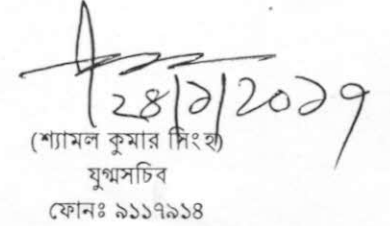 ২৪/১/২০১৭
(শ্যামল কুমার সিংহ)
যুগ্মসচিব
ফোনঃ ৯১১৭৯১৪